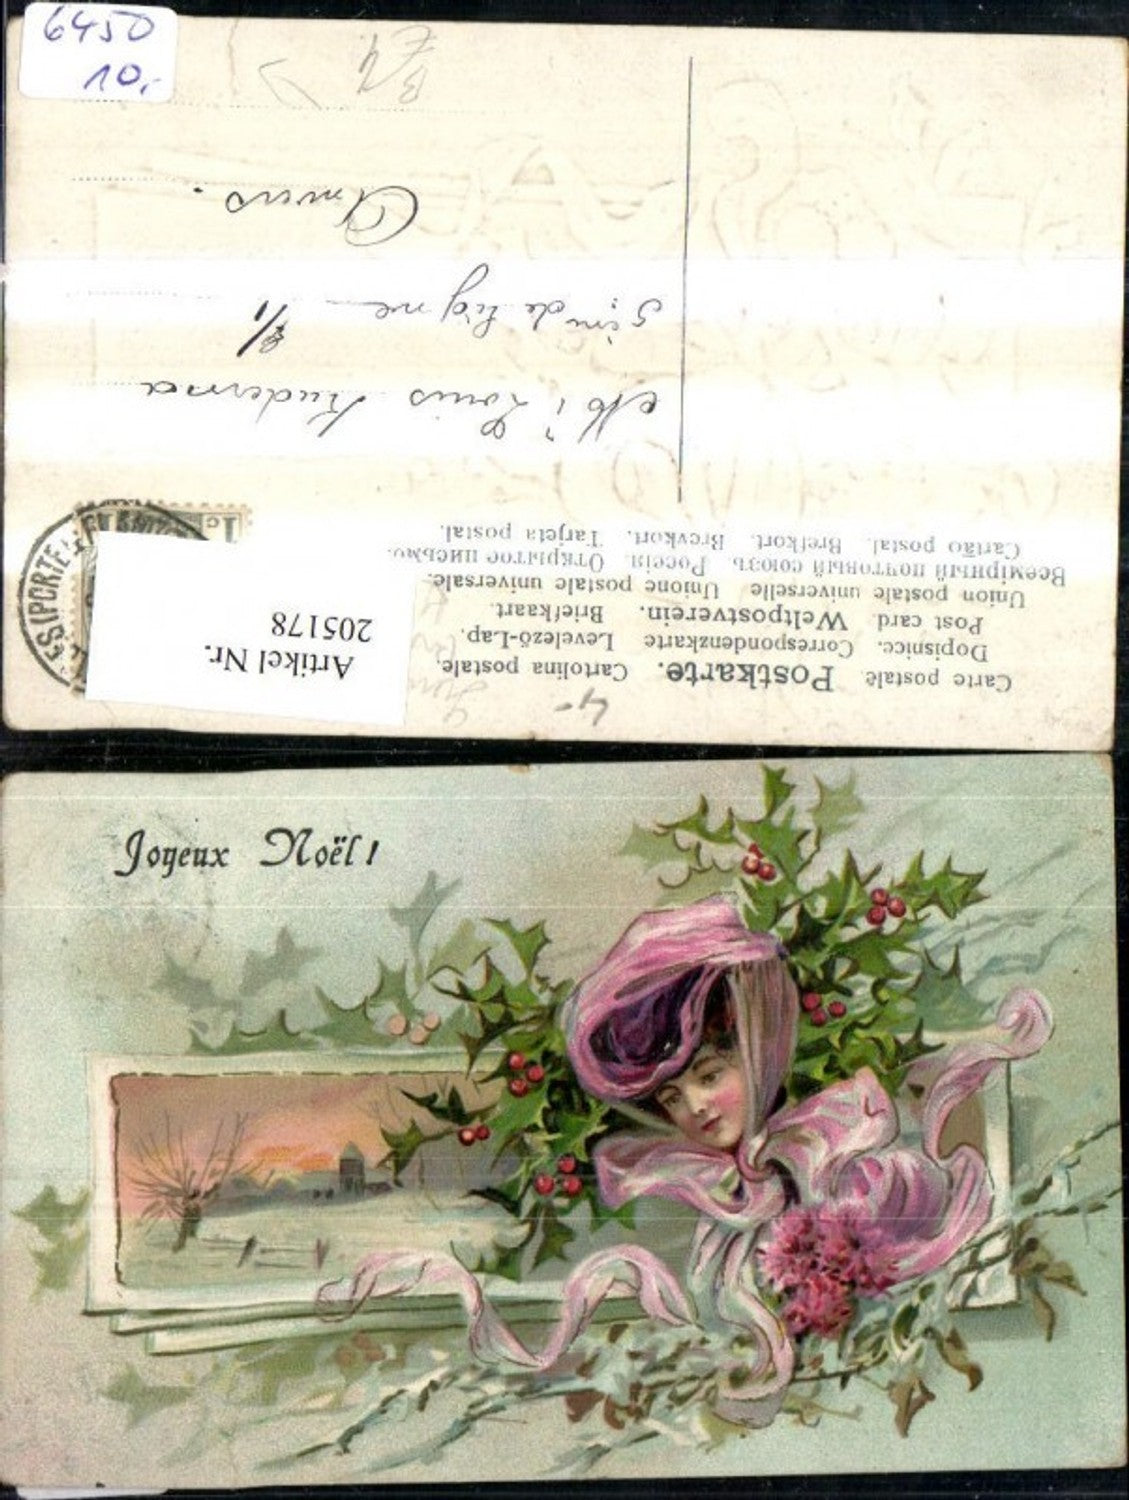 6450
10,-
Carte postale Postkarte. Cartolina postale.
Dopisnice. Correspondenzkarte Levelező-Lap.
Post card Weltpostverein. Briefkaart.
Union postale universelle Unione postale universale.
Всемірный почтовый союзъ. Россія. Открытое письмо.
Cartão postal. Brefkort. Brevkort. Tarjeta postal.
Artikel Nr.
205178
1c
(PORTE
Louis
de ligne
Anvers.
Joyeux Noël!